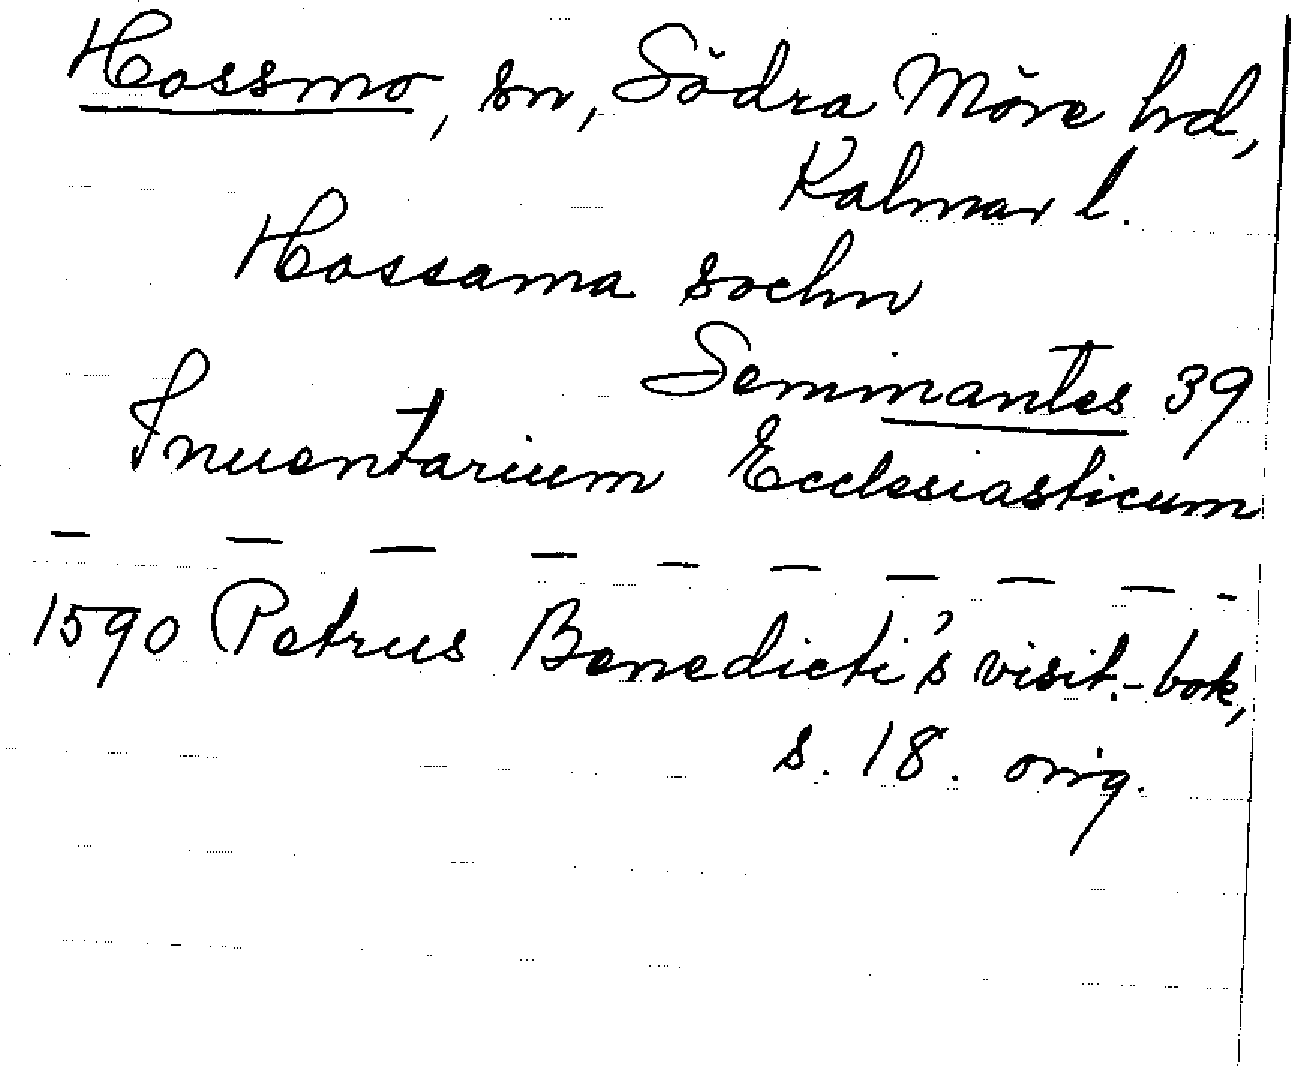 Hossmo, sn, Södra Möre hd,
Kalmar l.
Hossama sochn
Seminantes 39
Inuentarium Ecclesiasticum
— — — — — — — — — -
1590 Petrus Benedicti's visit.-bok,
s. 18. orig.